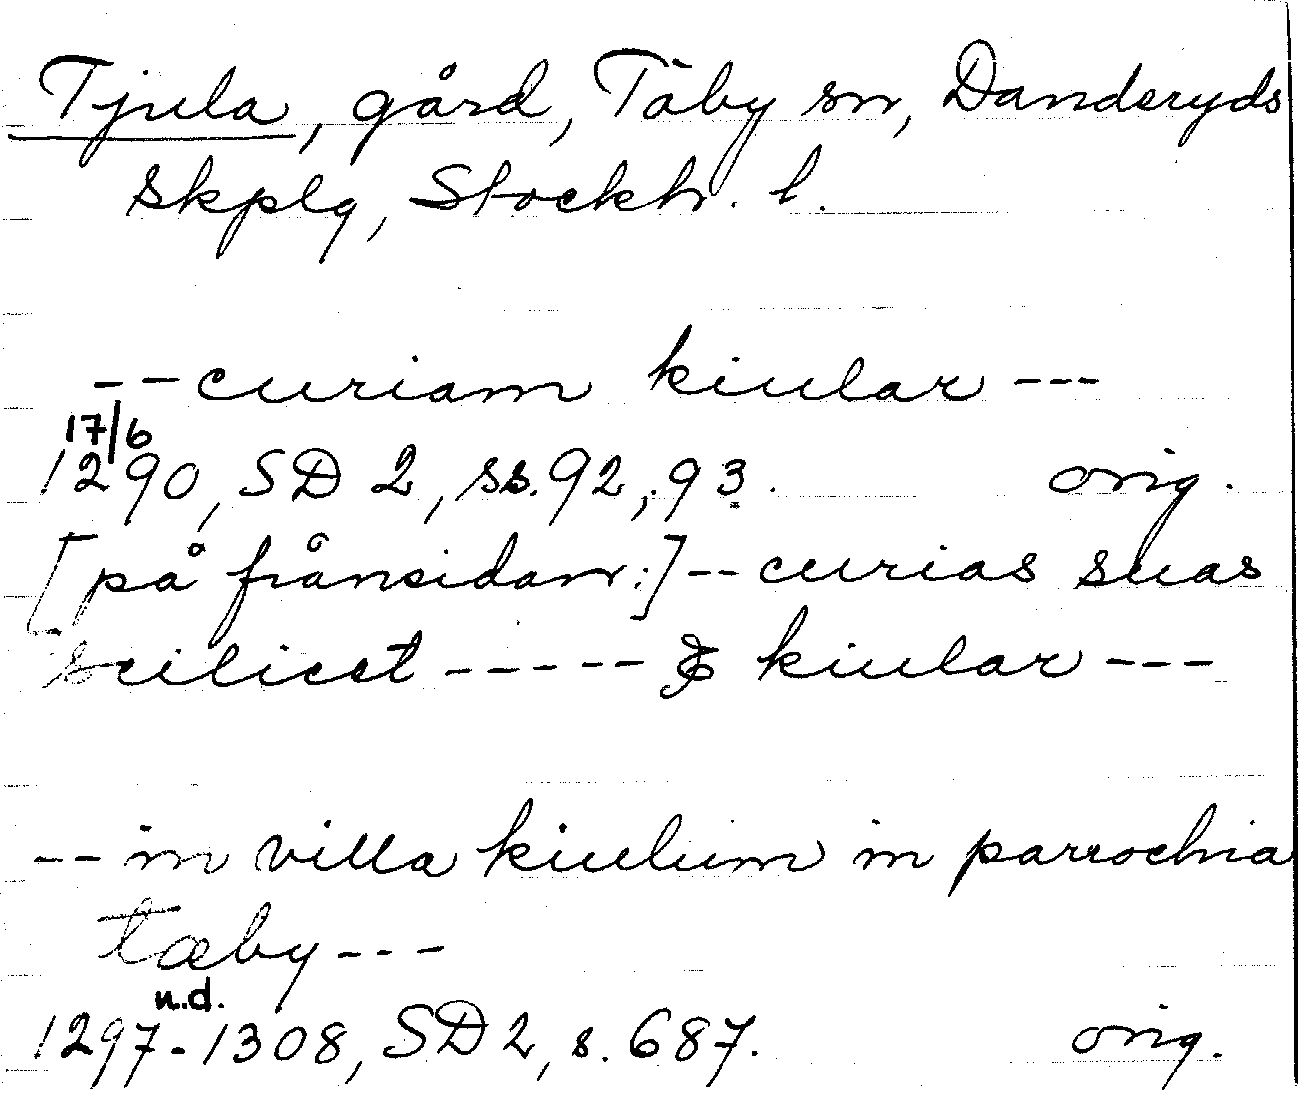 Tjula, gård, Täby sn, Danderyds
skplg, Stockh. l.
-- curiam kiular ---
17/6
1290, SD 2, ss. 92, 93. orig.
[på frånsidan:] -- curias suas
scilicet ----- & kiular ---
-- in villa kiulum in parrochia
tæby ---
n.d.
1297-1308, SD 2, s. 687. orig.